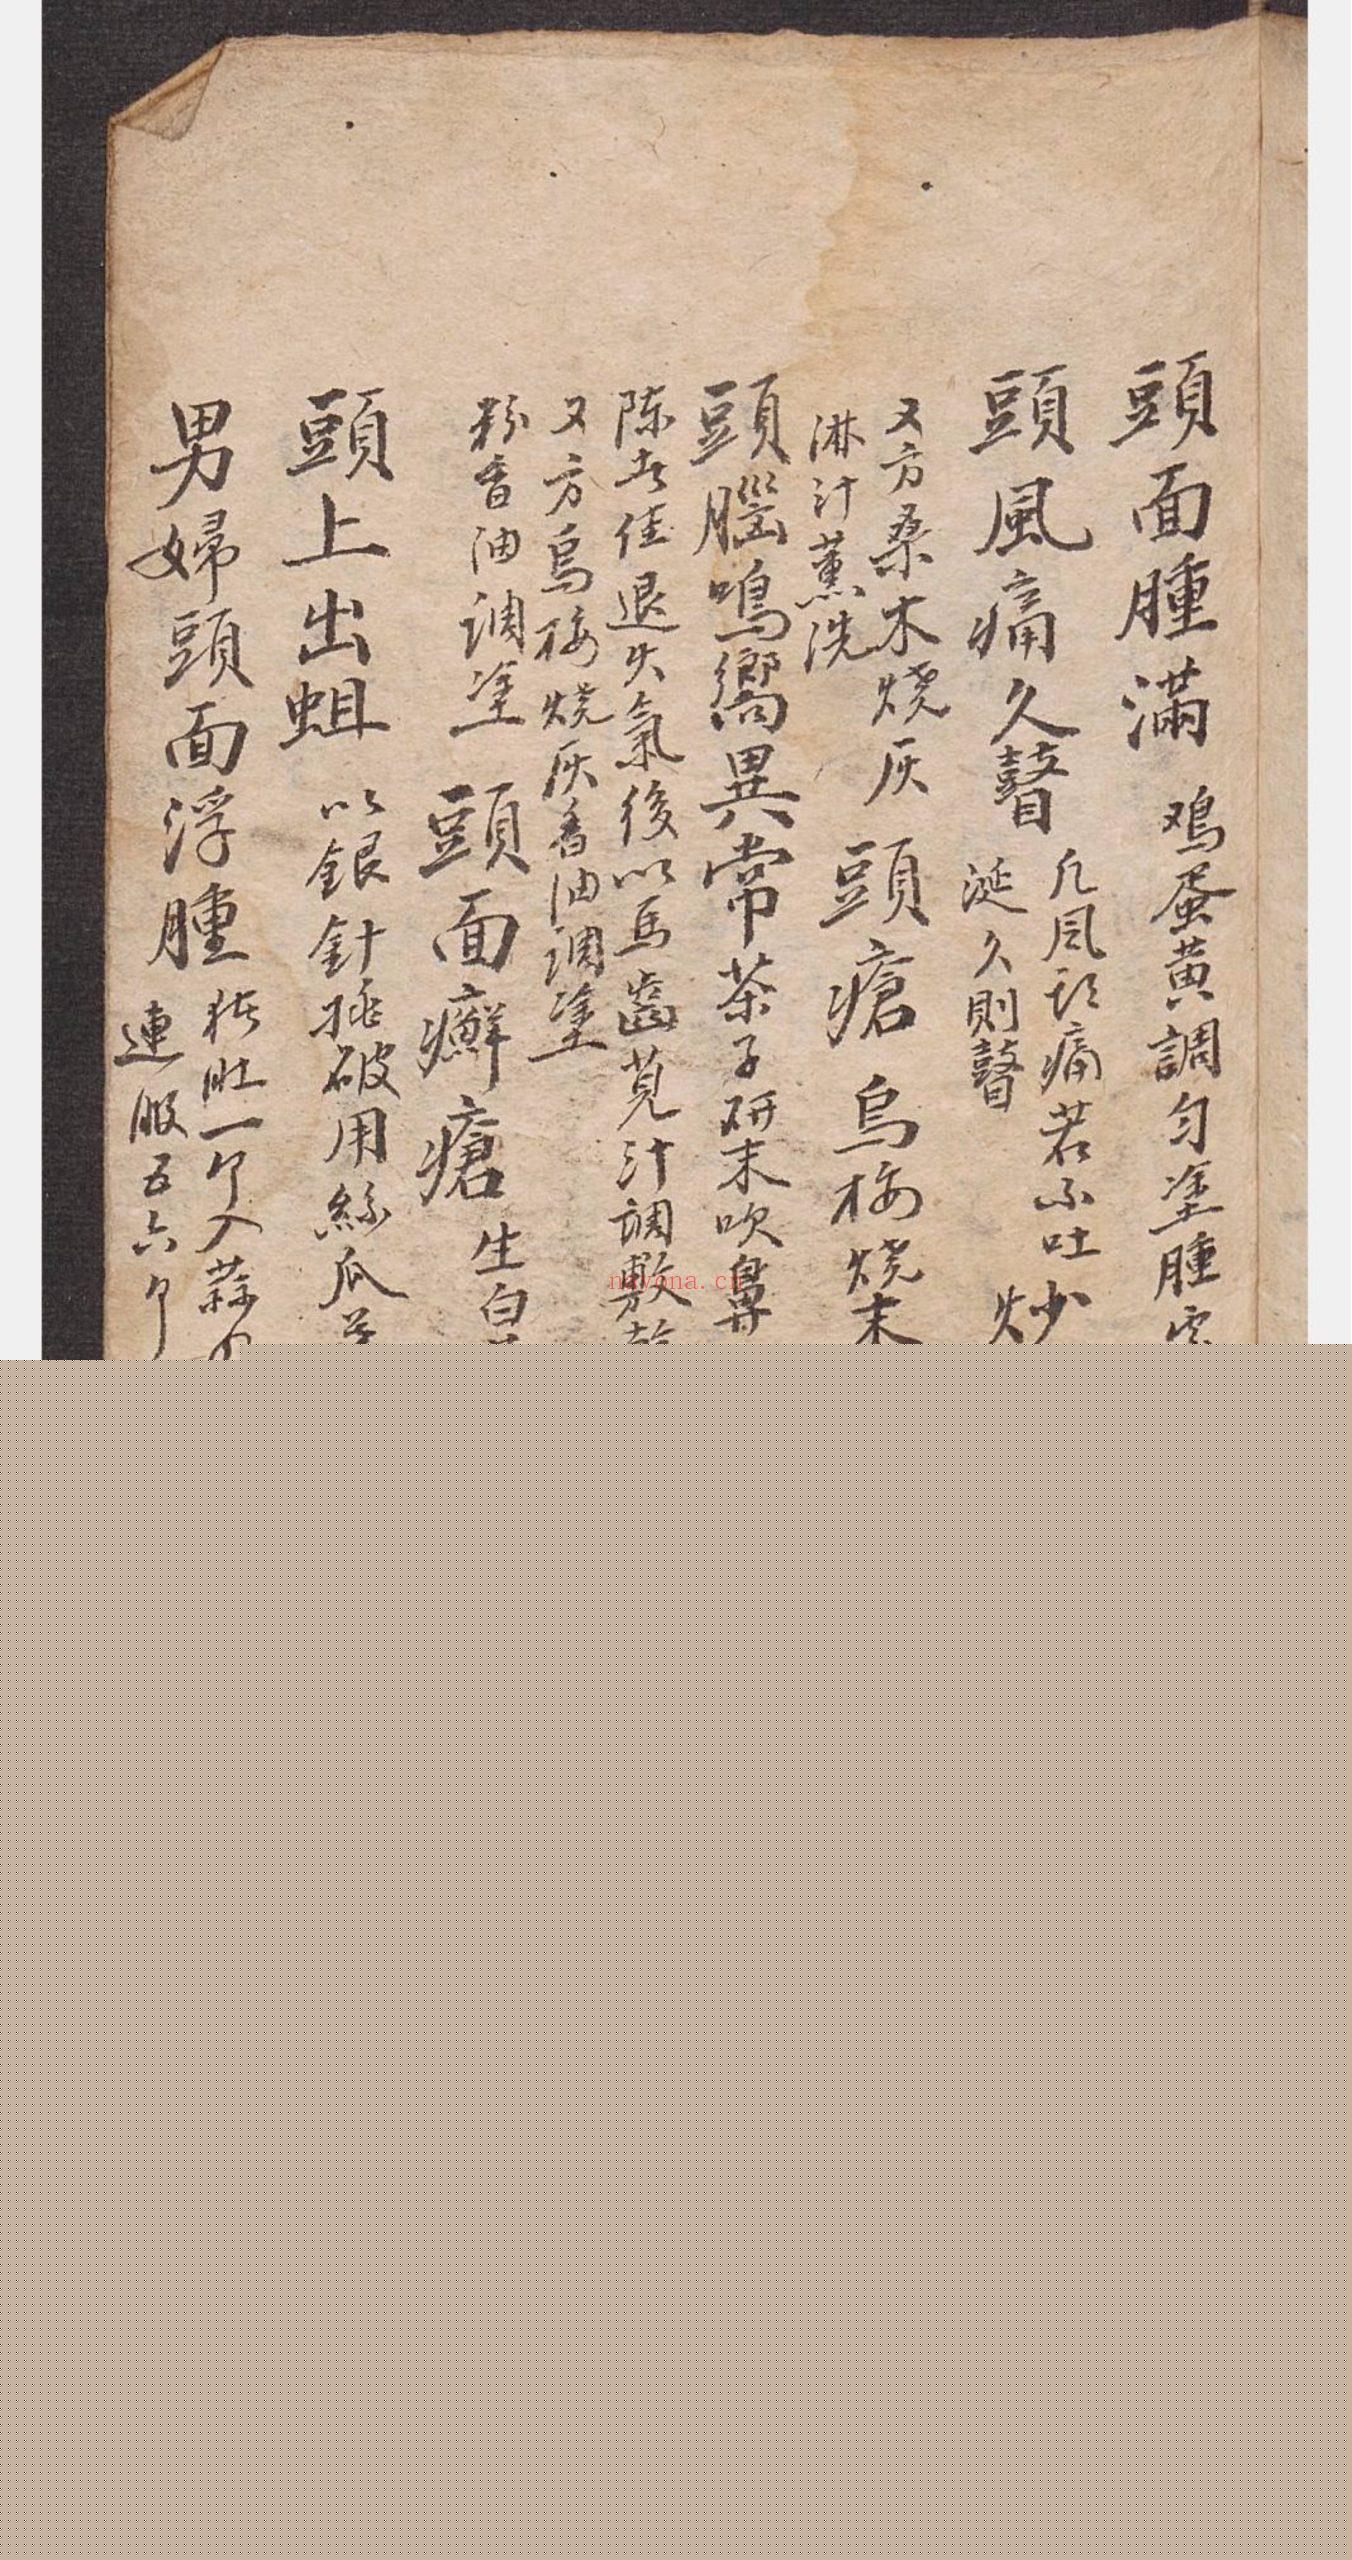 頭面腫滿 鸡蛋黃調匀塗腫
頭風痛久瞽 凡風头痛若不吐
涎久則瞽 炒
又方桑木烧灰
淋汁薰洗 頭瘡 烏梅烧末
頭腦鳴嚮異常 茶子研末吹鼻
陈者佳 退火氣後以馬齒莧汁調敷
又方烏梅烧灰香油调塗
粉香油调塗 頭面癬瘡 生白
頭上出蛆 以銀針挑破用絲瓜
男婦頭面浮腫 猪肚一个入蒜
連服五六个
nayona.cn